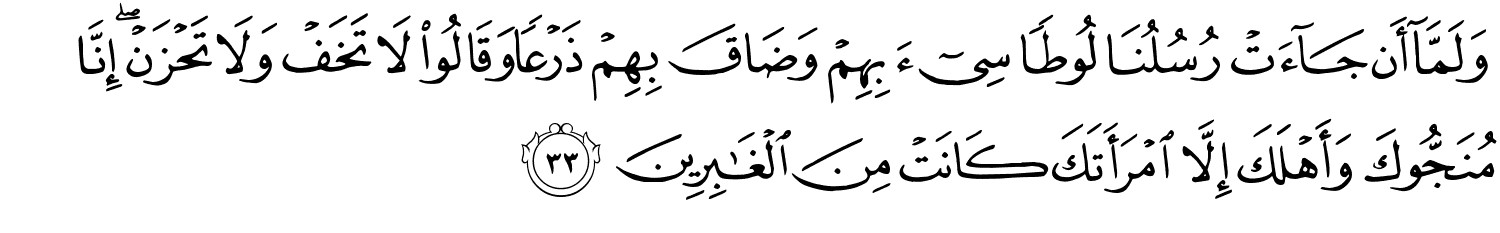 وَلَمَّآ أَن جَآءَتْ رُسُلُنَا لُوطًا سِىٓءَ بِهِمْ وَضَاقَ بِهِمْ ذَرْعًا وَقَالُوا۟ لَا تَخَفْ وَلَا تَحْزَنْ ۖ إِنَّا
مُنَجُّوكَ وَأَهْلَكَ إِلَّا ٱمْرَأَتَكَ كَانَتْ مِنَ ٱلْغَـٰبِرِينَ ٣٣